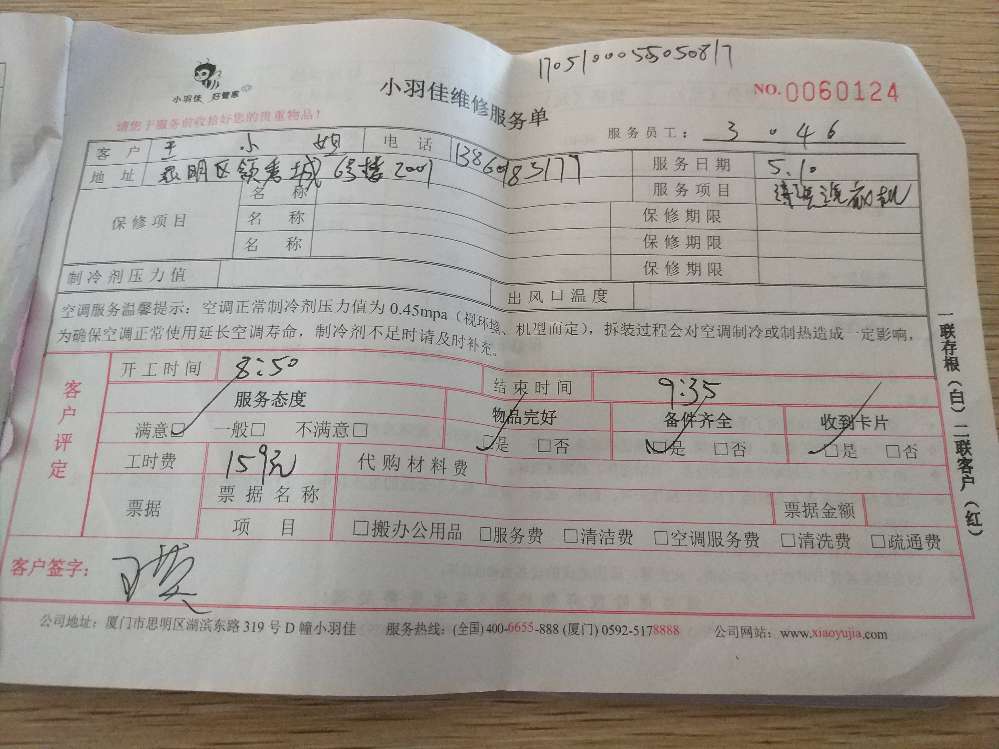 170510005505087
小羽佳 好管家
小羽佳维修服务单
NO.0060124
请您于服务前收拾好您的贵重物品!
服务员工: 3046
客户 王小姐 电话
服务日期 5.10
地址 思明区领秀城6号楼2001
服务项目 清洗洗衣机
保修项目
名称 保修期限
名称 保修期限
名称 保修期限
制冷剂压力值 出风口温度
空调服务温馨提示:空调正常制冷剂压力值为 0.45mpa(视环境、机型而定),拆装过程会对空调制冷或制热造成一定影响,
为确保空调正常使用延长空调寿命,制冷剂不足时请及时补充。
客户评定
开工时间 8:50 结束时间 9:35
服务态度 物品完好 备件齐全 收到卡片
满意□ 一般□ 不满意□ □是 □否 □是 □否 □是 □否
工时费 159元 代购材料费
票据 票据名称 票据金额
项目 □搬办公用品 □服务费 □清洁费 □空调服务费 □清洗费 □疏通费
客户签字:
公司地址:厦门市思明区湖滨东路 319 号 D 幢小羽佳 服务热线:(全国) 400-6655-888 (厦门) 0592-5178888 公司网站:www.xiaoyujia.com
一联存根(白)二联客户(红)